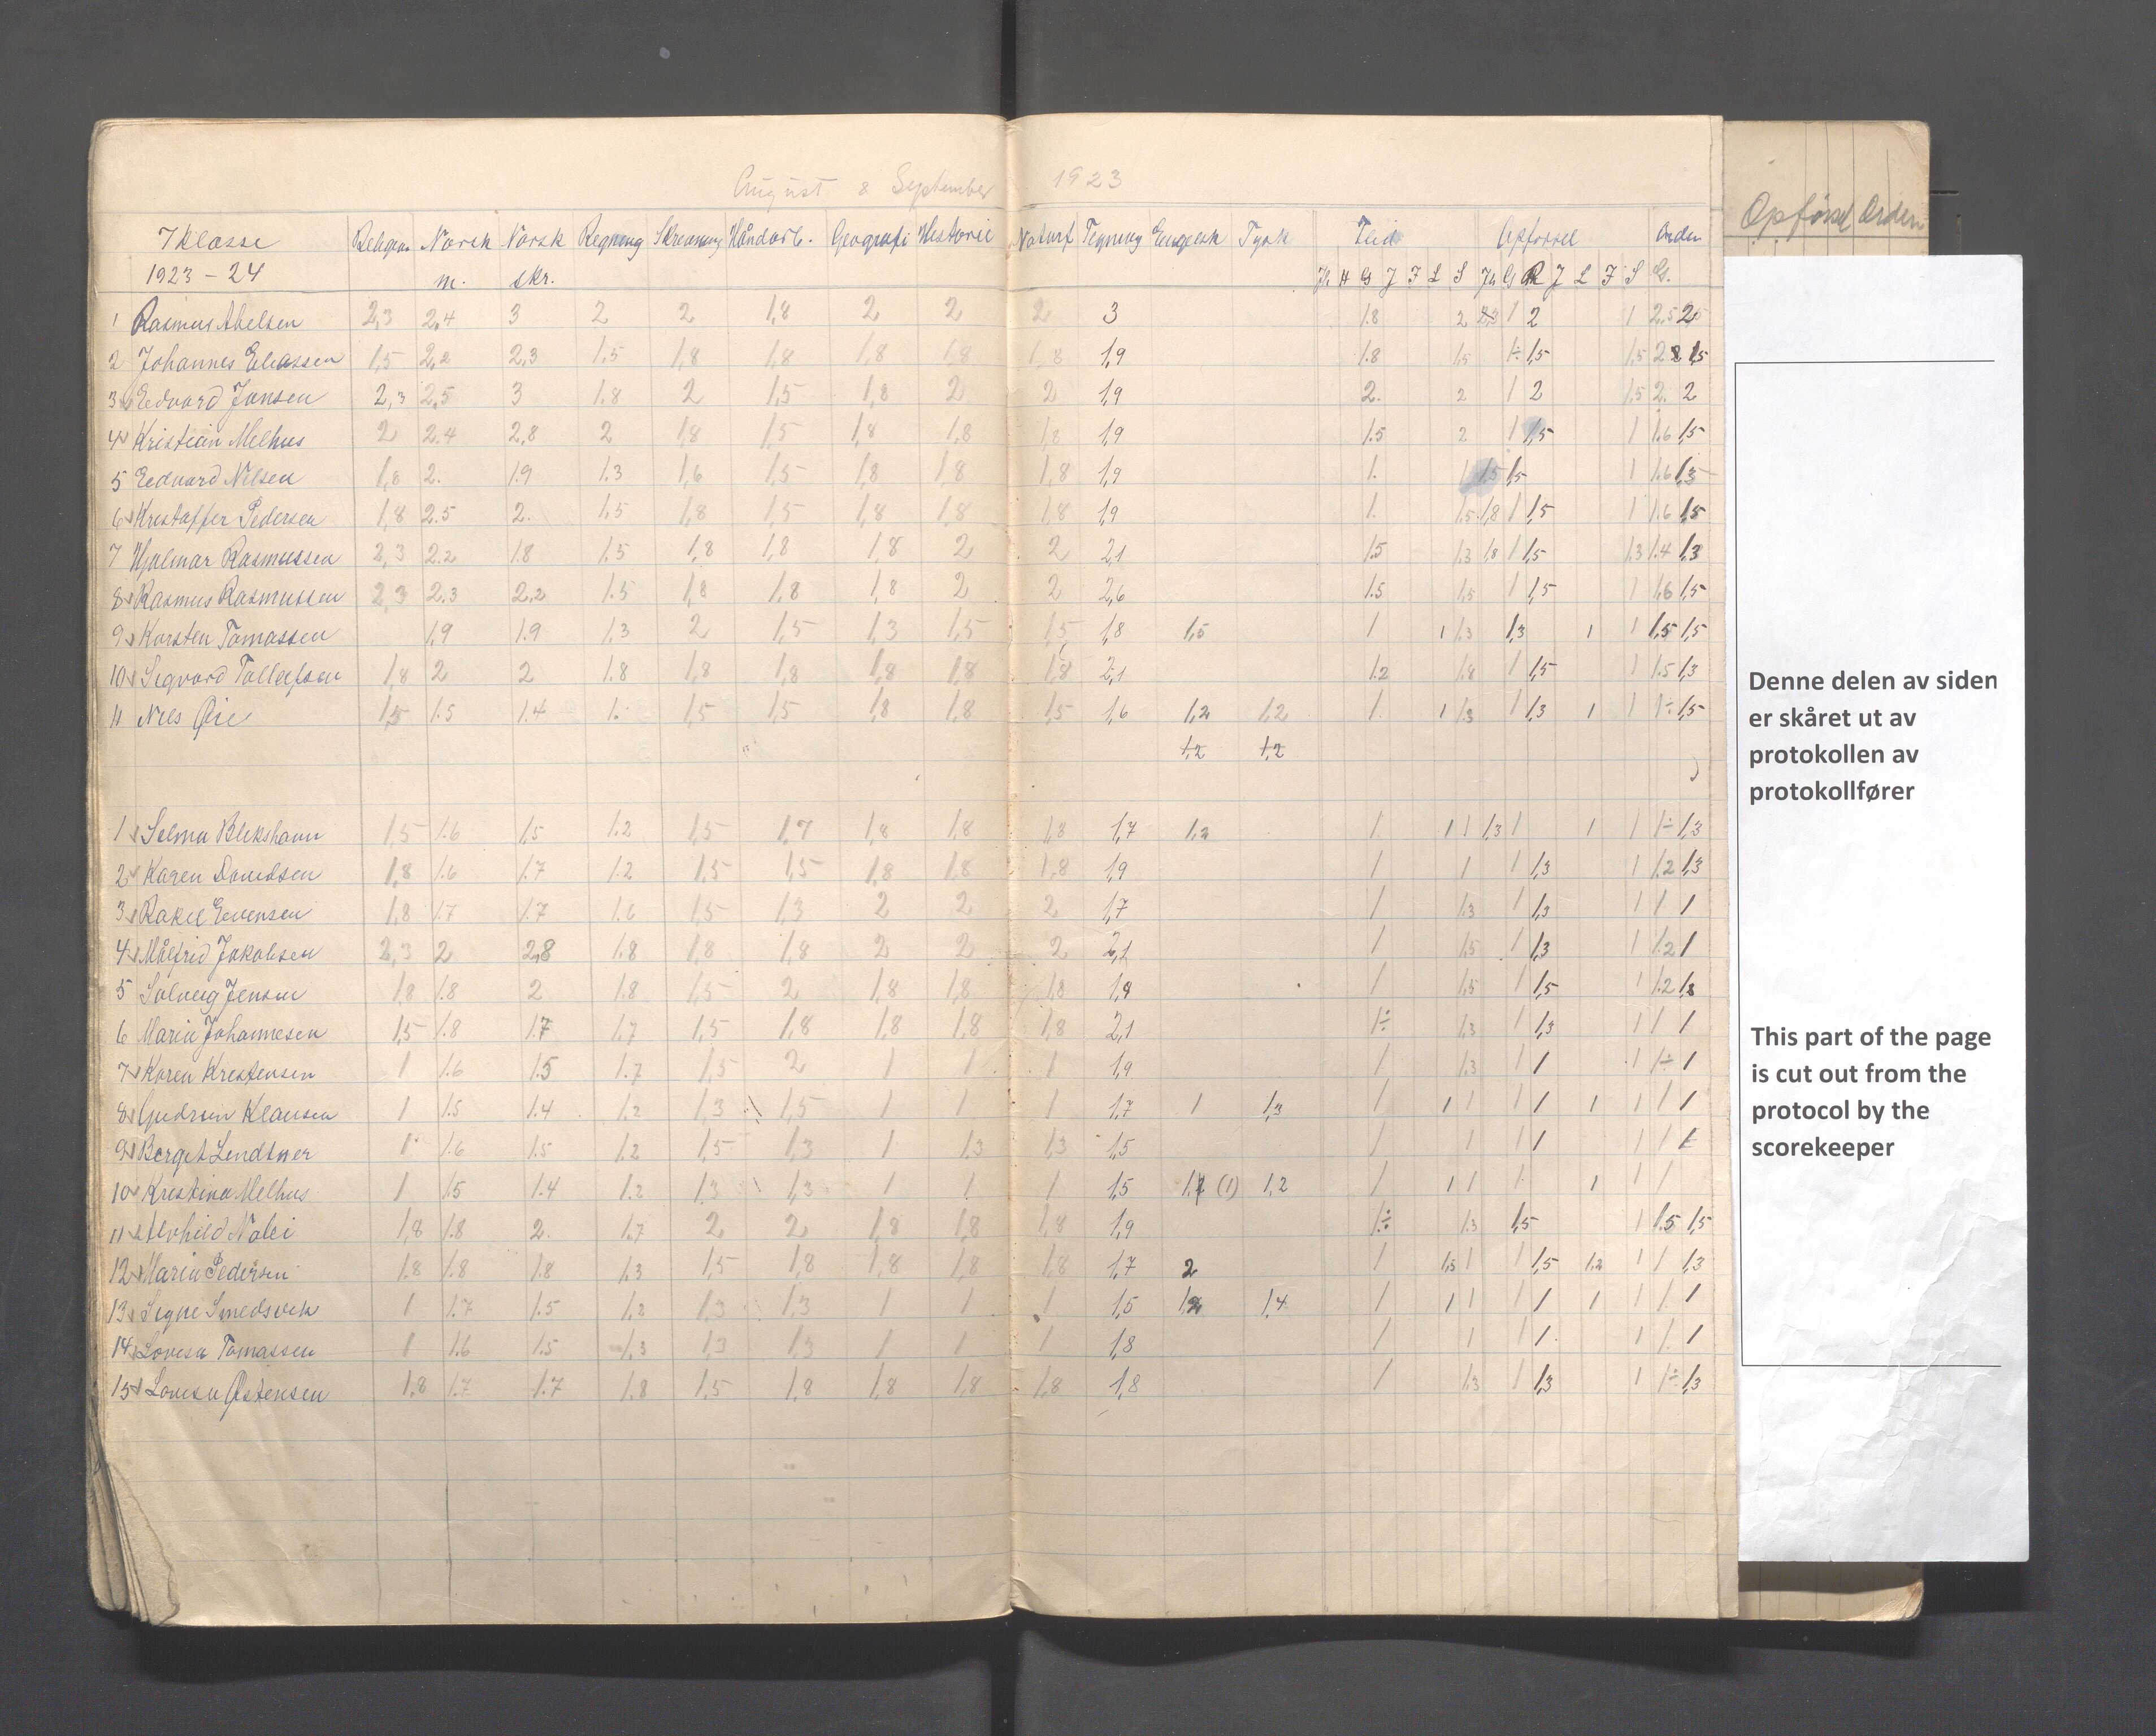 August & September 1923
Opførsel Orden
7 Klasse Religion Norsk Norsk Regning Skrivning Håndarb. Geografi Historie Naturf. Tegning Engelsk Tysk Flid Opførsel Orden
1923 - 24 m. skr.
1 Rasmus Abelsen 2,3 2.4 3 2 2 1,8 2 2 2 3 1.8 2 1 2 1 2.5
2 Johannes Eliassen 1,5 2,2 2,3 1.5 1,8 1,8 1,8 1,8 1,8 1,9 1.8 1,5 1÷ 1,5 1.5 1,5
3 Edvard Jansen 2,3 2.5 3 1.8 2 1,5 1,8 2 2 1,9 2. 2 1 2 1.5 2. 2
4 Kristian Melhus 2 2.4 2,8 2 1,8 1,5 1,8 1,8 1,8 1,9 1.5 2 1 1,5 1 1.6 1,5
5 Edvard Nilsen 1,8 2. 1.9 1.3 1,6 1,5 1,8 1,8 1,8 1,9 1. 1 1,5 1,5 1 1.6 1,3
6 Kristoffer Pedersen 1,8 2.5 2. 1.5 1,8 1,5 1,8 1,8 1,8 1,9 1. 1.5 1,8 1 1,5 1 1.6 1,5
7 Hjalmar Rasmussen 2,3 2.2 1.8 1.5 1,8 1,8 1,8 2 2 2,1 1.5 1.3 1,8 1 1,5 1.3 1.4 1,3
8 Rasmus Rasmussen 2,3 2.3 2.2 1.5 1,8 1,8 1,8 2 2 2,6 1.5 1.5 1 1,5 1 1.6 1,5
9 Karsten Tomassen 1,9 1.9 1,3 2 1,5 1,3 1,5 1,5 1,8 1,5 1 1 1.3 1,3 1 1 1.5 1,5
10 Sigvard Tollefsen 1,8 2 2 1.8 1,8 1,8 1,8 1,8 1,8 2,1 1.2 1.8 1 1,5 1 1.5 1,3
11 Nils Øie 1,5 1.5 1.4 1. 1,5 1,5 1,8 1,8 1,5 1,6 1,2 1,2 1 1 1.3 1 1,3 1 1 1÷ 1,5
1,2 1,2
1 Selma Blikshavn 1,5 1.6 1.5 1.2 1,5 1,7 1,8 1,8 1,8 1,7 1,2 1 1 1 1,3 1 1 1 1÷ 1,3
2 Karen Davidsen 1,8 1.6 1.7 1.2 1,5 1,5 1,8 1,8 1,8 1,9 1 1 1 1,3 1 1.2 1,3
3 Rakel Evensen 1,8 1.7 1.7 1.6 1,5 1,3 2 2 2 1,7 1 1.3 1 1,3 1 1 1
4 Målfrid Jakobsen 2,3 2 2,8 1.8 1,8 1,8 2 2 2 2,1 1 1.5 1 1,3 1 1.2 1
5 Solveig Jensen 1,8 1.8 2 1.8 1,5 2 1,8 1,8 1,8 1,9 1 1.5 1 1,5 1 1.2 1,3
6 Maria Johannesen 1,5 1.8 1.7 1.7 1,5 1,8 1,8 1,8 1,8 2,1 1÷ 1.3 1 1,3 1 1 1
7 Karen Kristensen 1 1.6 1.5 1.7 1,5 2 1 1 1 1,9 1 1.3 1 1 1 1÷ 1
8 Gudrun Klausen 1 1.5 1.4 1.2 1,3 1,5 1 1 1 1,7 1 1,3 1 1 1 1 1 1 1 1 1
9 Bergit Lendtner 1 1.6 1.5 1.2 1,5 1,3 1 1,3 1,3 1,5 1 1 1 1 1 1
10 Kristina Melhus 1 1.5 1.4 1.2 1,3 1,3 1 1 1 1,5 (1) 1,2 1 1 1 1 1 1 1
11 Alvhild Nålei 1,8 1.8 2. 1.7 2 2 1,8 1,8 1,8 1,9 1÷ 1.3 1,5 1 1.5 1,5
12 Maria Pedersen 1.8 1.8 1.8 1.3 1,5 1,8 1,8 1,8 1,8 1,7 2 1 1,5 1 1 1,5 1,2 1 1 1,3
13 Signe Smedsvik 1 1.7 1.5 1.2 1,3 1,3 1 1 1 1,5 1,4 1 1 1 1 1 1 1 1 1
14 Lovisa Tomassen 1 1.6 1.5 1.3 1,3 1,3 1 1 1 1,8 1 1 1 1 1 1 1
15 Lovisa Østensen 1,8 1.7 1.7 1.8 1,5 1,8 1,8 1,8 1,8 1,8 1 1.3 1 1,3 1 1÷ 1,3
Denne delen av siden
er skåret ut av
protokollen av
protokollfører
This part of the page
is cut out from the
protocol by the
scorekeeper